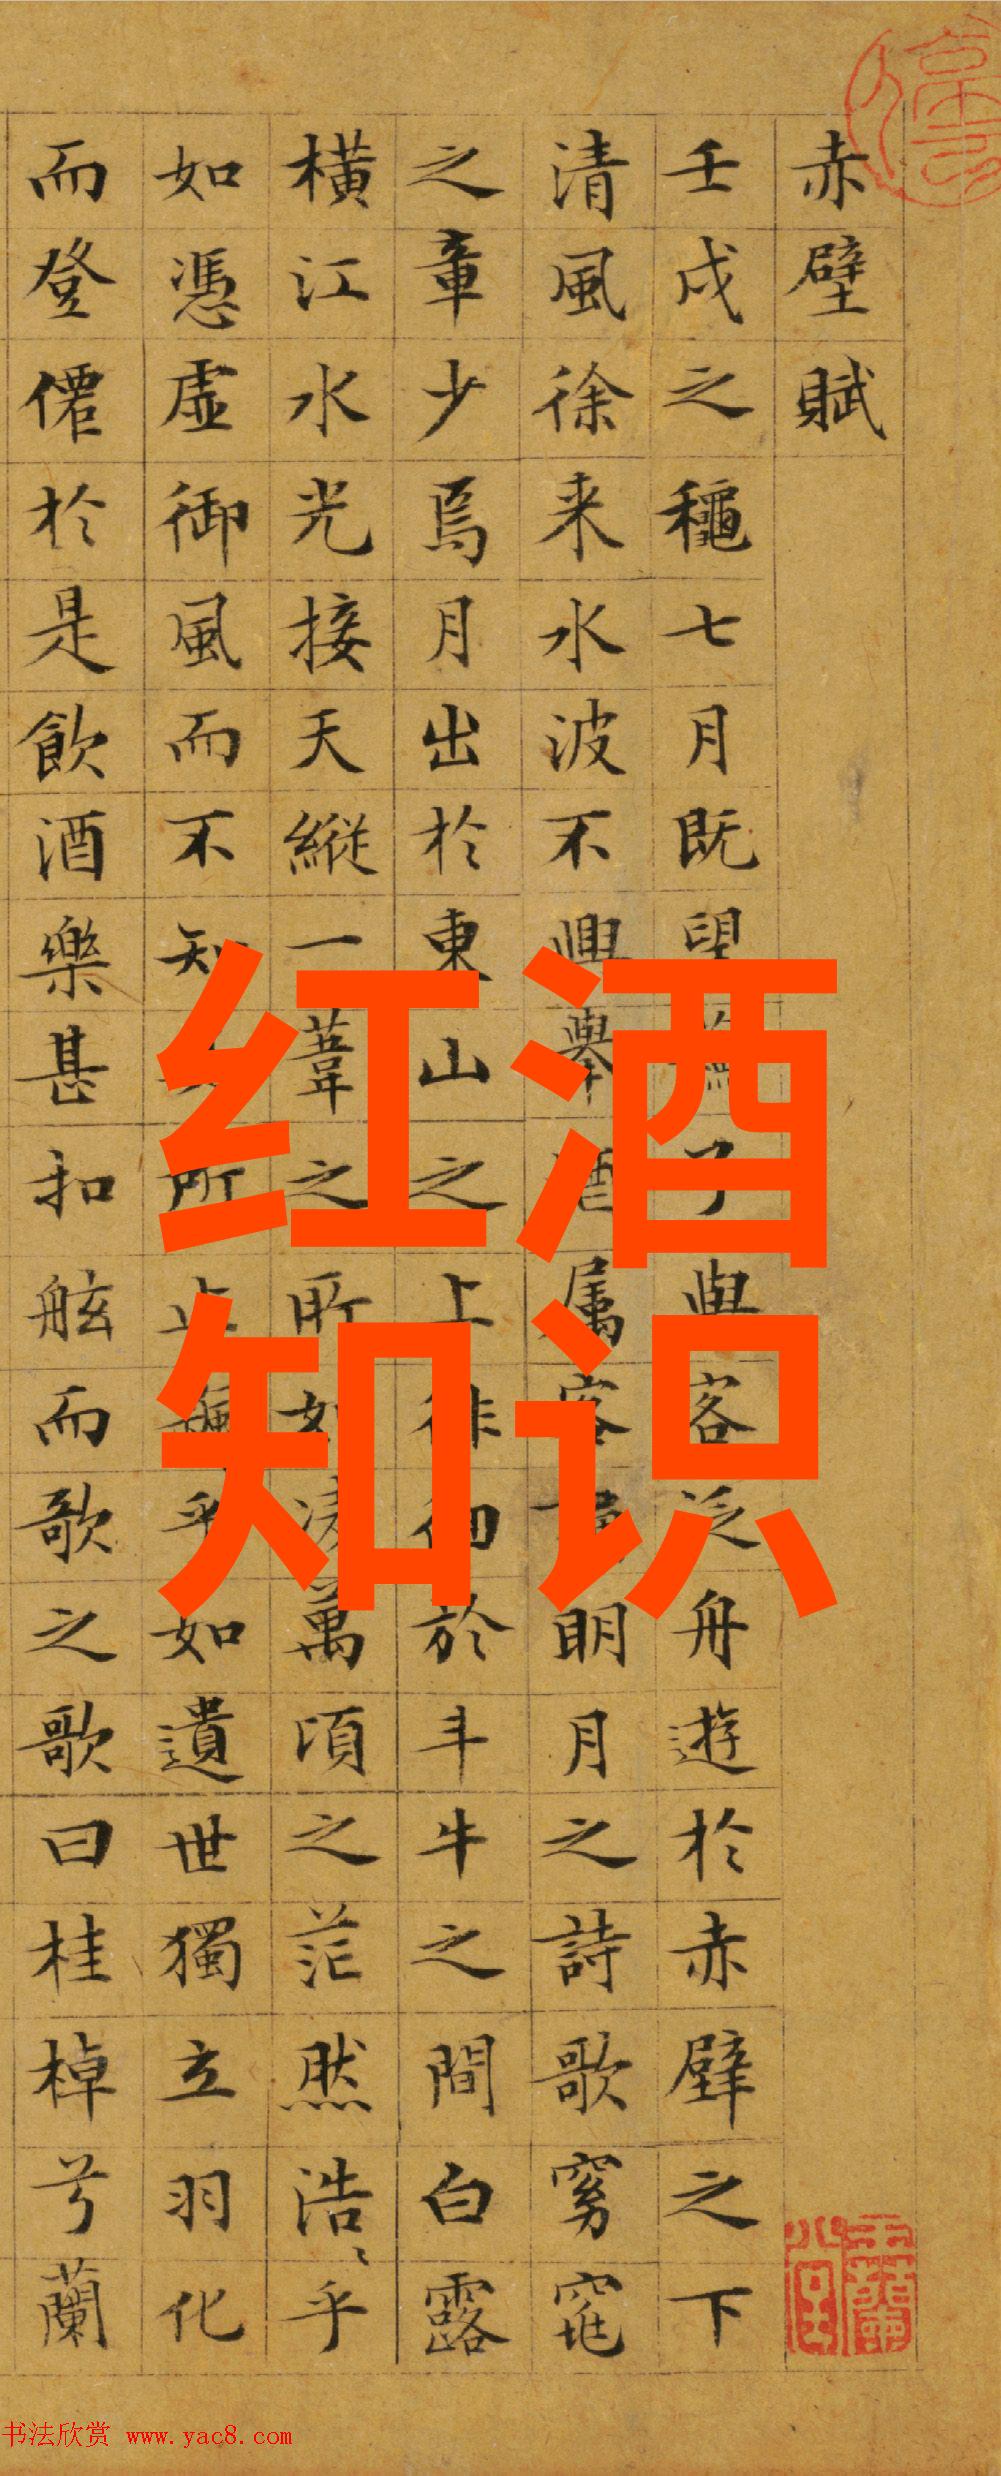 赤壁賦
壬戌之龝七月既望與客泛舟遊於赤壁之下
清風徐来水波不興舉酒属客明月之詩歌窈窕
之章少焉月出於東山之上徘徊於斗牛之間白露
橫江水光接天縱一葦之所如凌萬頃之茫然浩〻乎
如憑虛御風而不知所止飄乎如遺世獨立羽化
而登僊於是飲酒樂甚扣舷而歌之歌曰桂棹兮蘭
红酒
知识
书法欣赏 www.yac8.com